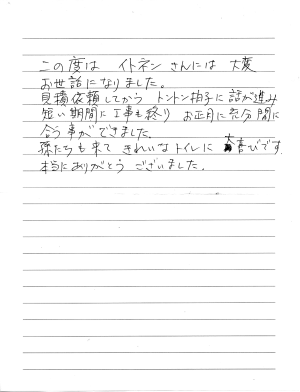 この度は イトネン さんには 大変
お世話になりました。
見積依頼してから トントン拍子に話が進み
短い期間に工事も終り お正月に充分間に
合う事ができました。
孫たちも来て きれいなトイレに 大喜びです
本当にありがとう ございました。